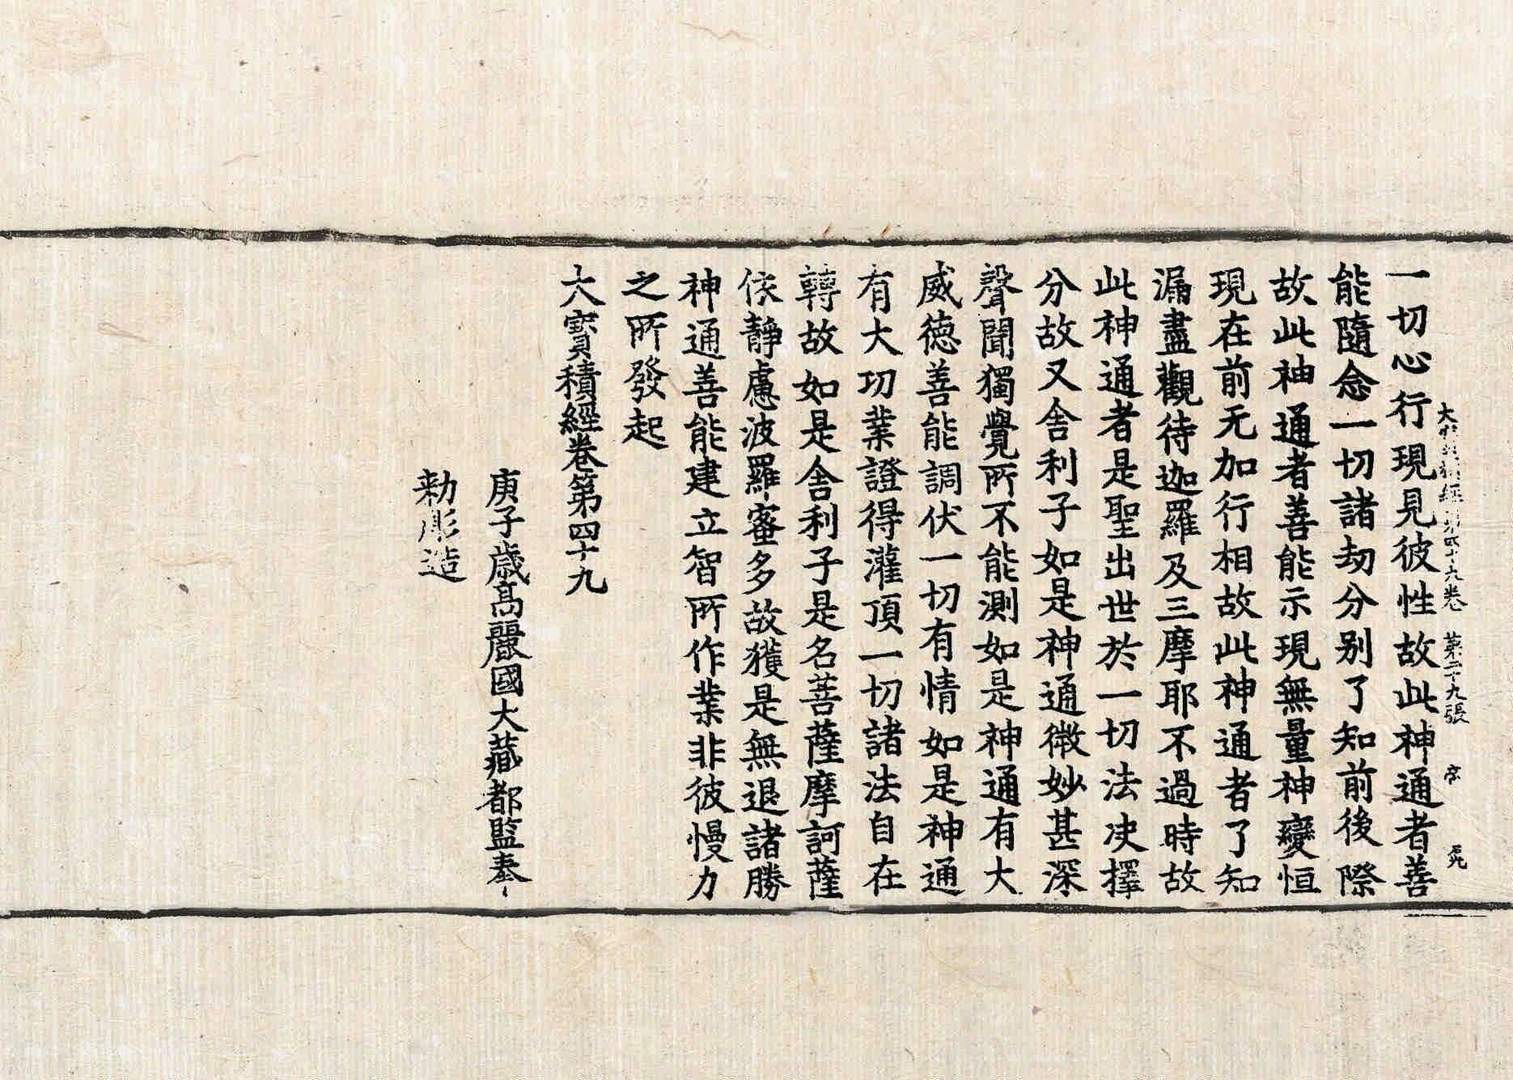 大寶積經第四十九卷 第二十九張 官
一切心行現見彼性故此神通者善
能隨念一切諸劫分別了知前後際
故此神通者善能示現無量神變恒
現在前无加行相故此神通者了知
漏盡觀待迦羅及三摩耶不過時故
此神通者是聖出世於一切法决擇
分故又舍利子如是神通微妙甚深
聲聞獨覺所不能測如是神通有大
威德善能調伏一切有情如是神通
有大功業證得灌頂一切諸法自在
轉故如是舍利子是名菩薩摩訶薩
依靜慮波羅蜜多故獲是無退諸勝
神通善能建立智所作業非彼慢力
之所發起
大寶積經卷第四十九
庚子歲高麗國大藏都監奉
勅彫造